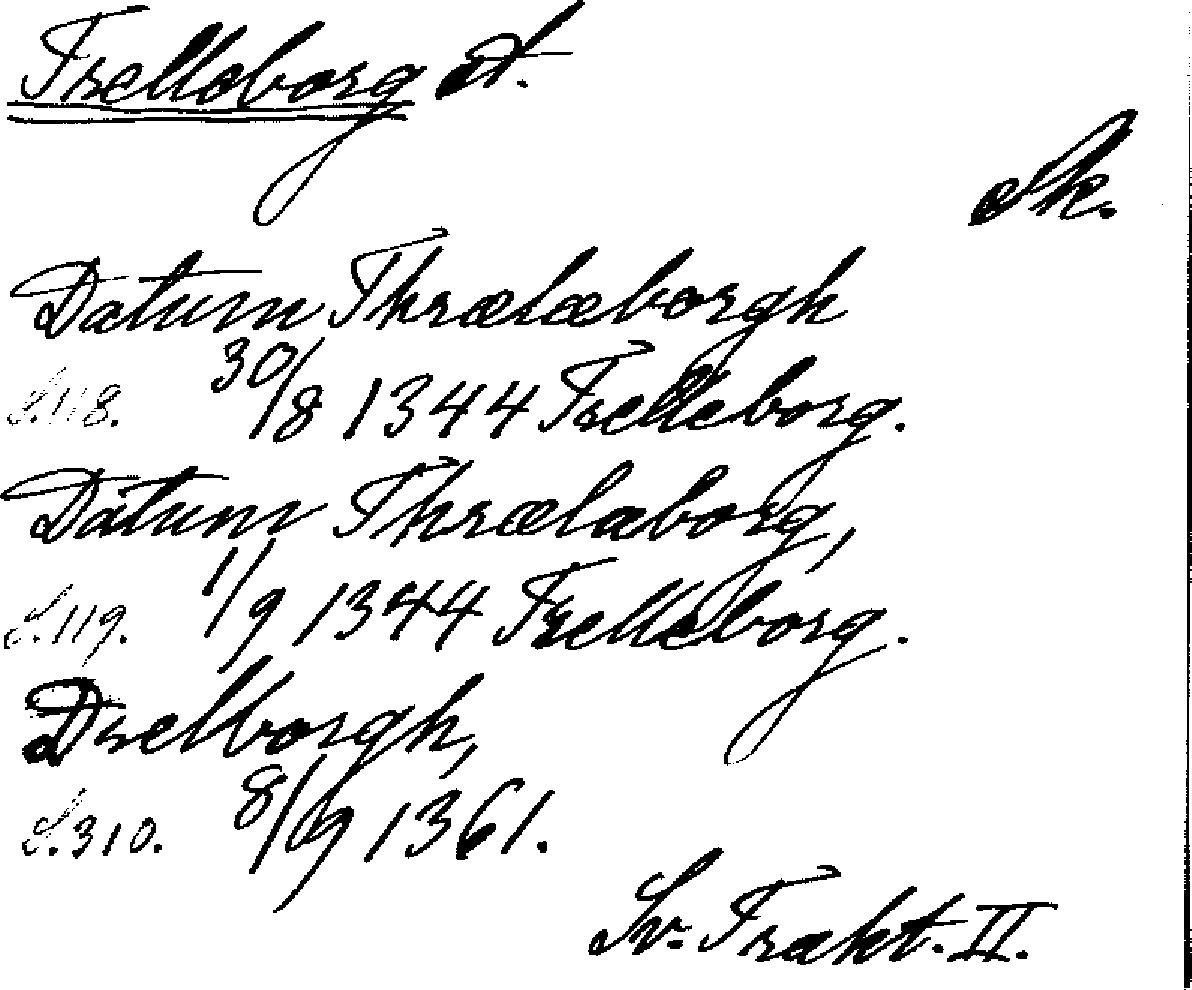 Trelleborg st.
Sk.
Datum Thrælæborgh
S.118. 30/8 1344 Trelleborg.
Datum Thrælaborg,
S.119. 1/9 1344 Trelleborg.
Drelborgh,
S.310. 8/9 1361.
Sv. Trakt. II.